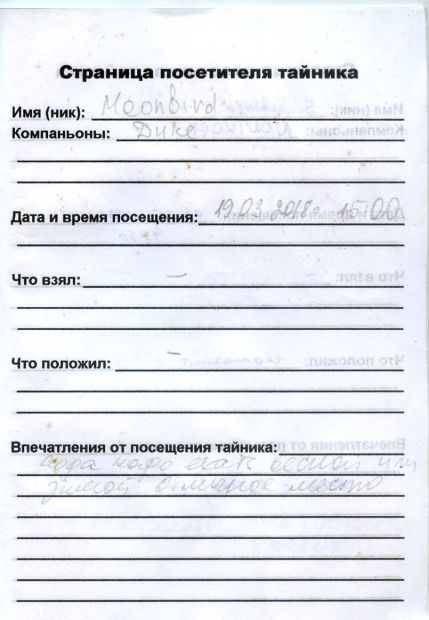 Страница посетителя тайника
Имя (ник): MoonBird
Компаньоны: Duke
Дата и время посещения: 19.03.2018г. 15:00
Что взял: –
Что положил: –
Впечатления от посещения тайника:
сюда надо ехать весной или
зимой Отличное место